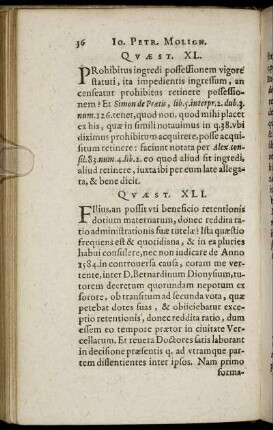 36 IO. PETR. MOLIGN.
QVÆST. XL.
PRohibitus ingredi possessionem vigore
statuti, ita impedientis ingressum, an
censeatur prohibitus retinere possessio-
nem? Et Simon de Pretis, lib.5.interpr.2. dub.3.
num.126. tenet, quod non, quod mihi placet
ex his, quæ in simili notauimus in q.38. vbi
diximus prohibitum acquirere, possė acqui-
situm retinere: faciunt notata per Alex. con-
sil.83.num.4.lib.2. eo quod aliud sit ingredi,
aliud retinere, iuxta ibi per eum late allega-
ta, & bene dicit.
QVÆST. XLI.
FIlius, an possit vti beneficio retentionis
dotium maternarum, donec reddita ra-
tio administrationis suæ tutelæ? Ista quæstio
frequens est & quotidiana, & in ea pluries
habui consulere, nec non iudicare de Anno
1584. in controuersa causa, coram me ver-
tente, inter D. Bernardinum Dionysium, tu-
torem decretum quorundam nepotum ex
sorore, ob transitum ad secunda vota, quæ
petebat dotes suas, & obiiciebatur exce-
ptio retentionis, donec reddita ratio, dum
essem eo tempore prætor in ciuitate Ver-
cellarum. Et reuera Doctores satis laborant
in decisione præsentis q. ad vtramque par-
tem dissentientes inter ipsos. Nam primo
forma-